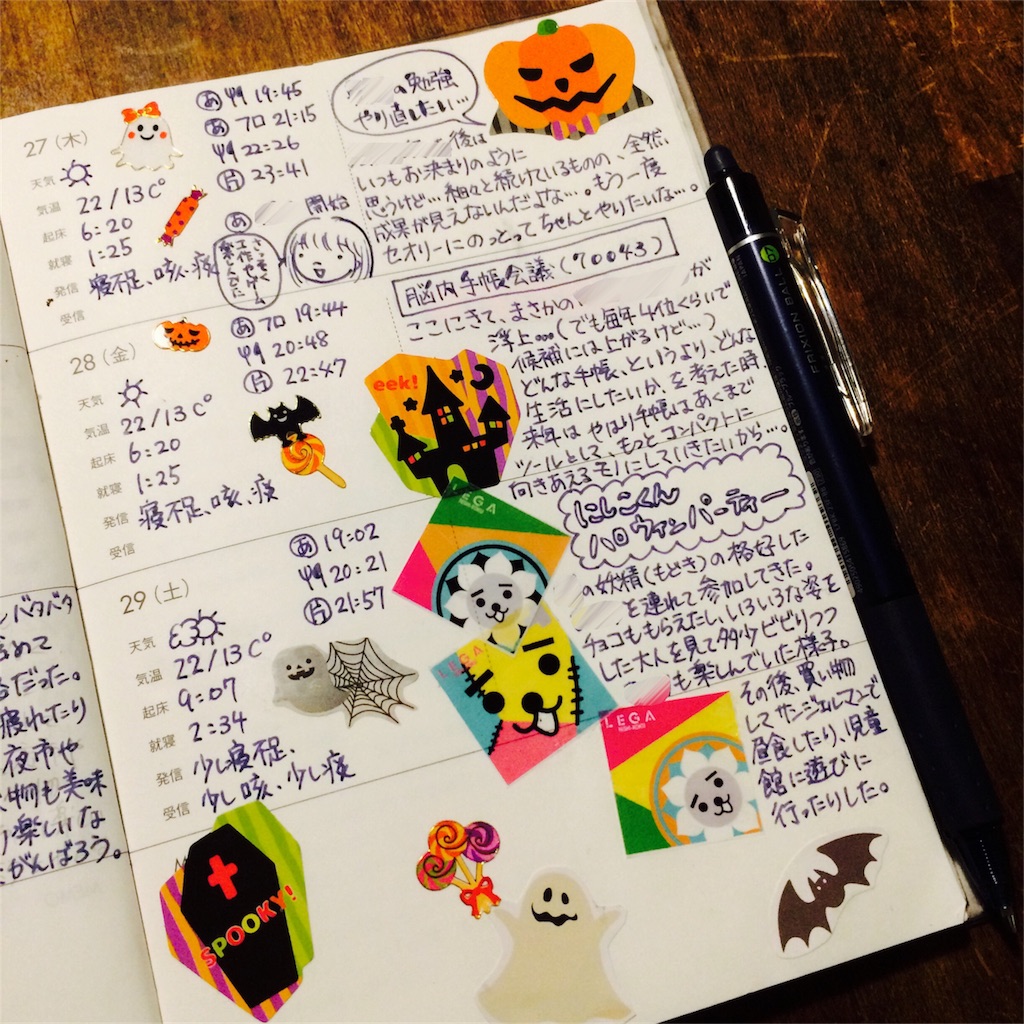 27 (木)
天気
気温 22/13 C°
起床 6:20
就寝 1:25
発信 寝不足、咳、痰
受信
あ 19:45
あ フロ 21:15
22:26
片 23:41
あ 開始
の勉強
やり直したい…
後は
いつもお決まりのように
思うけど…細々と続けているものの、全然
成果が見えないんだよな…。もう一度
セオリーにのっとってちゃんとやりたいな…。
28 (金)
天気
気温 22/13 C°
起床 6:20
就寝 1:25
発信 寝不足、咳、痰
受信
あ フロ 19:44
20:48
片 22:47
脳内手帳会議(70043)
ここにきて、まさかの が
浮上…(でも毎年4位くらいで
候補には上がるけど…)
どんな手帳、というより、どんな
生活にしたいか、を考えた時、
来年はやはり手帳はあくまで
ツールとして、もっとコンパクトに
向きあえるモノにしていきたいから…。
eek!
29 (土)
天気
気温 22/13 C°
起床 9:07
就寝 2:34
発信 少し寝不足、
受信 少し咳、少し痰
あ 19:02
20:21
片 21:57
にしこくん
ハロウィンパーティー
の妖精(もどき)の格好した
を連れて参加してきた。
チョコももらえたし、いろいろな姿を
した大人を見て多少ビビりつつ
も楽しんでいた様子。
その後、買い物
してサンジェルマンで
昼食したり、児童
館に遊びに
行ったりした。
LEGA
LEGA
LEGA
SPOOKY!
バタバタ
めて
だった。
寝れたり
夜市や
物も美味
楽しいな
がんばろう。
FRIXION BALL